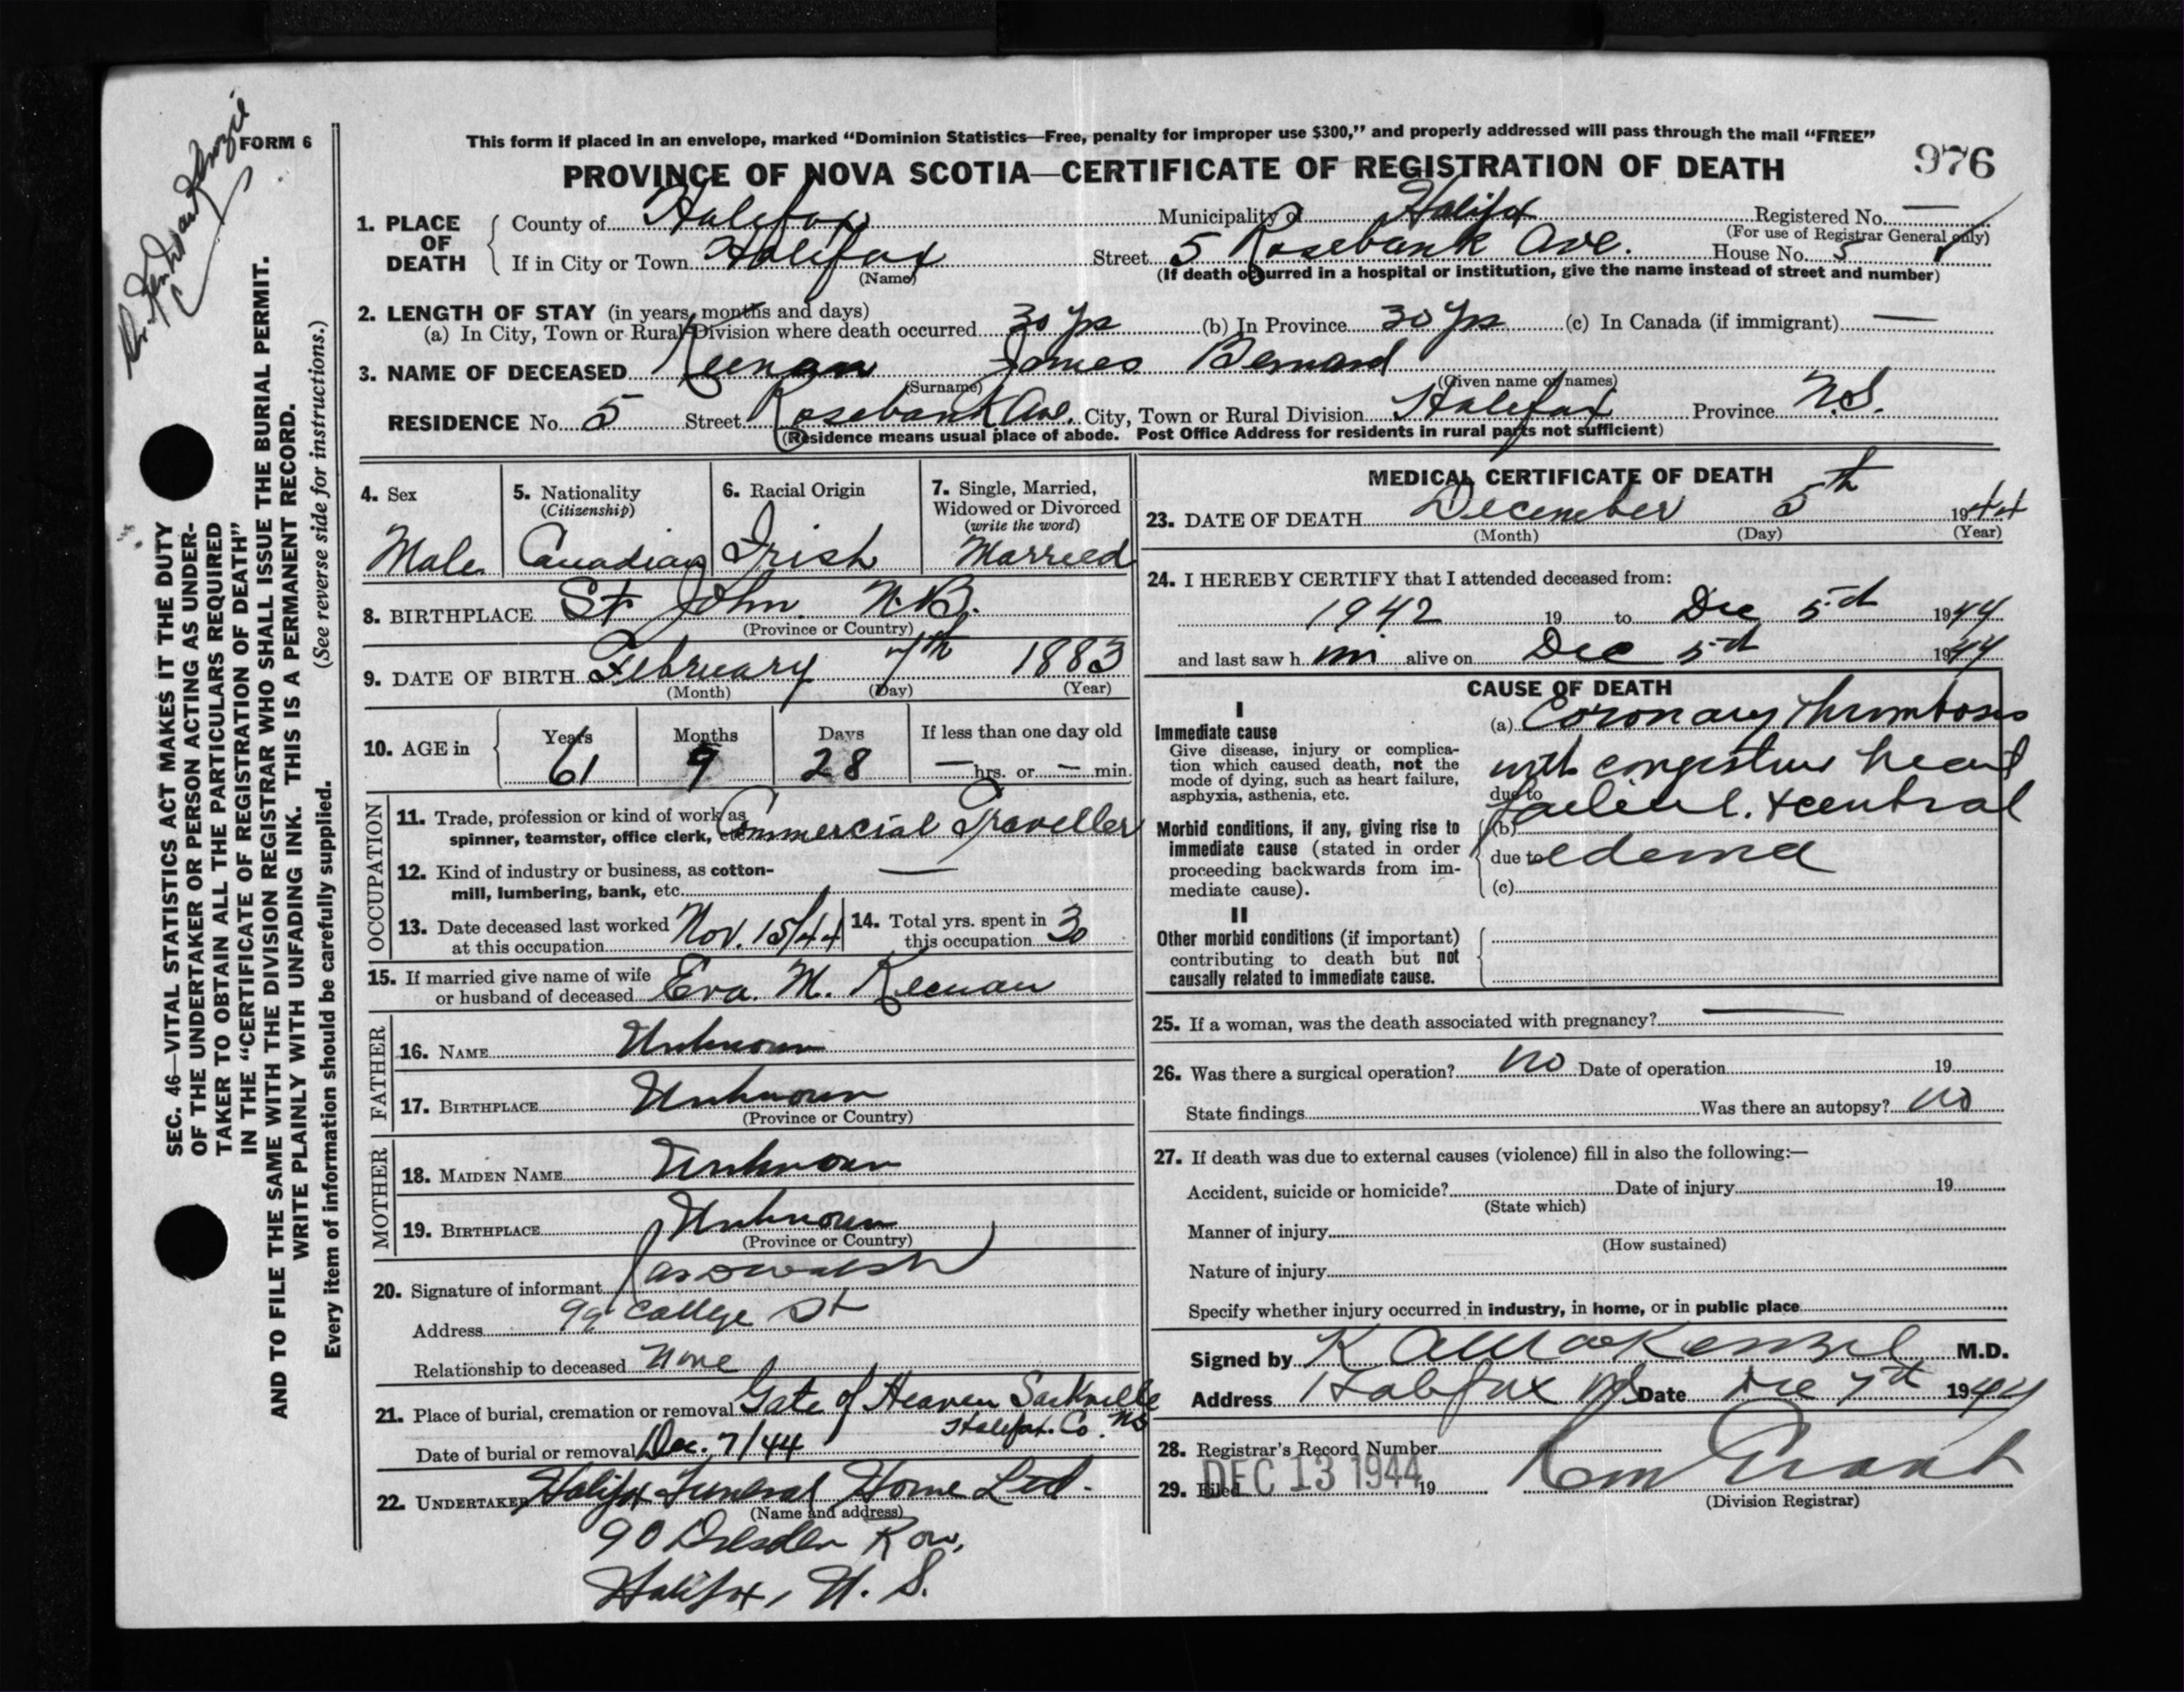 FORM 6
This form if placed in an envelope, marked “Dominion Statistics—Free, penalty for improper use $300,” and properly addressed will pass through the mail “FREE”
PROVINCE OF NOVA SCOTIA—CERTIFICATE OF REGISTRATION OF DEATH
976
SEC. 46—VITAL STATISTICS ACT MAKES IT THE DUTY
OF THE UNDERTAKER OR PERSON ACTING AS UNDER-
TAKER TO OBTAIN ALL THE PARTICULARS REQUIRED
IN THE “CERTIFICATE OF REGISTRATION OF DEATH”
AND TO FILE THE SAME WITH THE DIVISION REGISTRAR WHO SHALL ISSUE THE BURIAL PERMIT.
WRITE PLAINLY WITH UNFADING INK. THIS IS A PERMANENT RECORD.
Every item of information should be carefully supplied. (See reverse side for instructions.)
1. PLACE OF DEATH
County of Halifax Municipality of Halifax Registered No. —
(For use of Registrar General only)
If in City or Town Halifax Street 5 Rosebank Ave. House No. 5
(Name) (If death occurred in a hospital or institution, give the name instead of street and number)
2. LENGTH OF STAY (in years, months and days)
(a) In City, Town or Rural Division where death occurred 30 yrs (b) In Province 30 yrs (c) In Canada (if immigrant) —
3. NAME OF DECEASED Keenan James Bernard
(Surname) (Given name or names)
RESIDENCE No. 5 Street Rosebank Ave. City, Town or Rural Division Halifax Province N.S.
(Residence means usual place of abode. Post Office Address for residents in rural parts not sufficient)
4. Sex
Male
5. Nationality
(Citizenship)
Canadian
6. Racial Origin
Irish
7. Single, Married,
Widowed or Divorced
(write the word)
Married
8. BIRTHPLACE St John N.B.
(Province or Country)
9. DATE OF BIRTH February 7th 1883
(Month) (Day) (Year)
10. AGE in
Years Months Days If less than one day old
61 9 28 — hrs. or — min.
OCCUPATION
11. Trade, profession or kind of work as
spinner, teamster, office clerk, etc. Commercial Traveller
12. Kind of industry or business, as cotton-
mill, lumbering, bank, etc. —
13. Date deceased last worked
at this occupation Nov. 15/44
14. Total yrs. spent in
this occupation 30
15. If married give name of wife
or husband of deceased Eva. M. Keenan
FATHER
16. NAME Unknown
17. BIRTHPLACE Unknown
(Province or Country)
MOTHER
18. MAIDEN NAME Unknown
19. BIRTHPLACE Unknown
(Province or Country)
20. Signature of informant Jas D Walsh
Address 99 College St
Relationship to deceased None
21. Place of burial, cremation or removal Gate of Heaven Sackville
Halifax. Co. N.S
Date of burial or removal Dec. 7/44
22. UNDERTAKER Halifax Funeral Home Ltd.
(Name and address)
90 Dresden Row,
Halifax, N. S.
MEDICAL CERTIFICATE OF DEATH
23. DATE OF DEATH December 5th 1944
(Month) (Day) (Year)
24. I HEREBY CERTIFY that I attended deceased from:
1942 19 to Dec 5th 1944
and last saw h im alive on Dec 5th 1944
CAUSE OF DEATH
I
Immediate cause
Give disease, injury or complica-
tion which caused death, not the
mode of dying, such as heart failure,
asphyxia, asthenia, etc.
(a) Coronary thrombosis
with congestive heart
due to
failure.
Morbid conditions, if any, giving rise to
immediate cause (stated in order
proceeding backwards from im-
mediate cause).
(b)
due to edema
(c)
II
Other morbid conditions (if important)
contributing to death but not
causally related to immediate cause.
25. If a woman, was the death associated with pregnancy? —
26. Was there a surgical operation? no Date of operation 19
State findings Was there an autopsy? no
27. If death was due to external causes (violence) fill in also the following:—
Accident, suicide or homicide? Date of injury 19
(State which)
Manner of injury
(How sustained)
Nature of injury
Specify whether injury occurred in industry, in home, or in public place
Signed by K A MacKenzie M.D.
Address Halifax NS Date Dec 7th 1944
28. Registrar's Record Number
29. Filed DEC 13 1944 19
(Division Registrar)